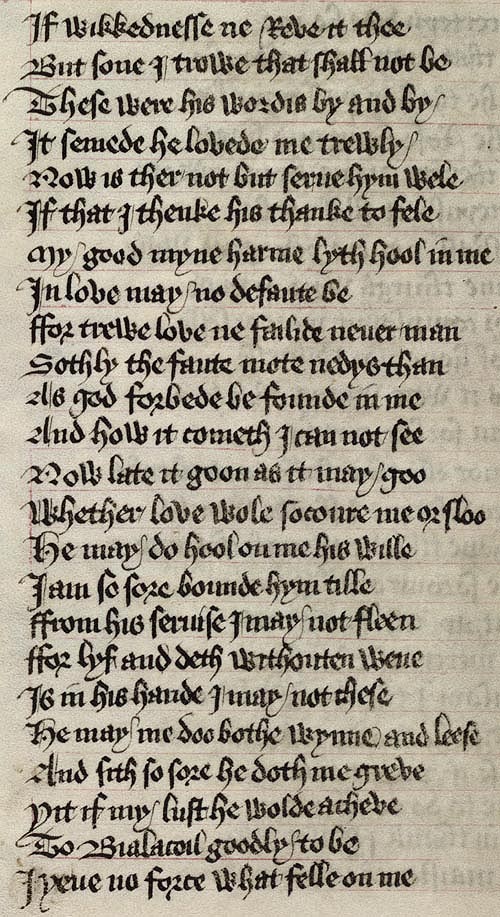 If wikkednesse ne Reve it thee
But sone I trowe that shall not be
These were his wordis by and by
It semede he lovede me trewly
Now is ther not but serue hym wele
If that I thenke his thanke to fele
My good myne harme lyth hool in me
In love may no defaute be
ffor trewe love ne failide neuer man
Sothly the faute mote nedys than
As god forbede be founde in me
And how it cometh I can not see
Now late it goon as it may goo
Whether love wole socoure me or sloo
He may do hool on me his wille
I am so sore bounde hym tille
ffrom his seruise I may not fleen
ffor lyf and deth withouten wene
Is in his hande I may not chese
He may me doo bothe wynne and leese
And sith so sore he doth me greve
Yit if my lust he wolde acheve
To Bialacoil goodly to be
I yeue no force what felle on me